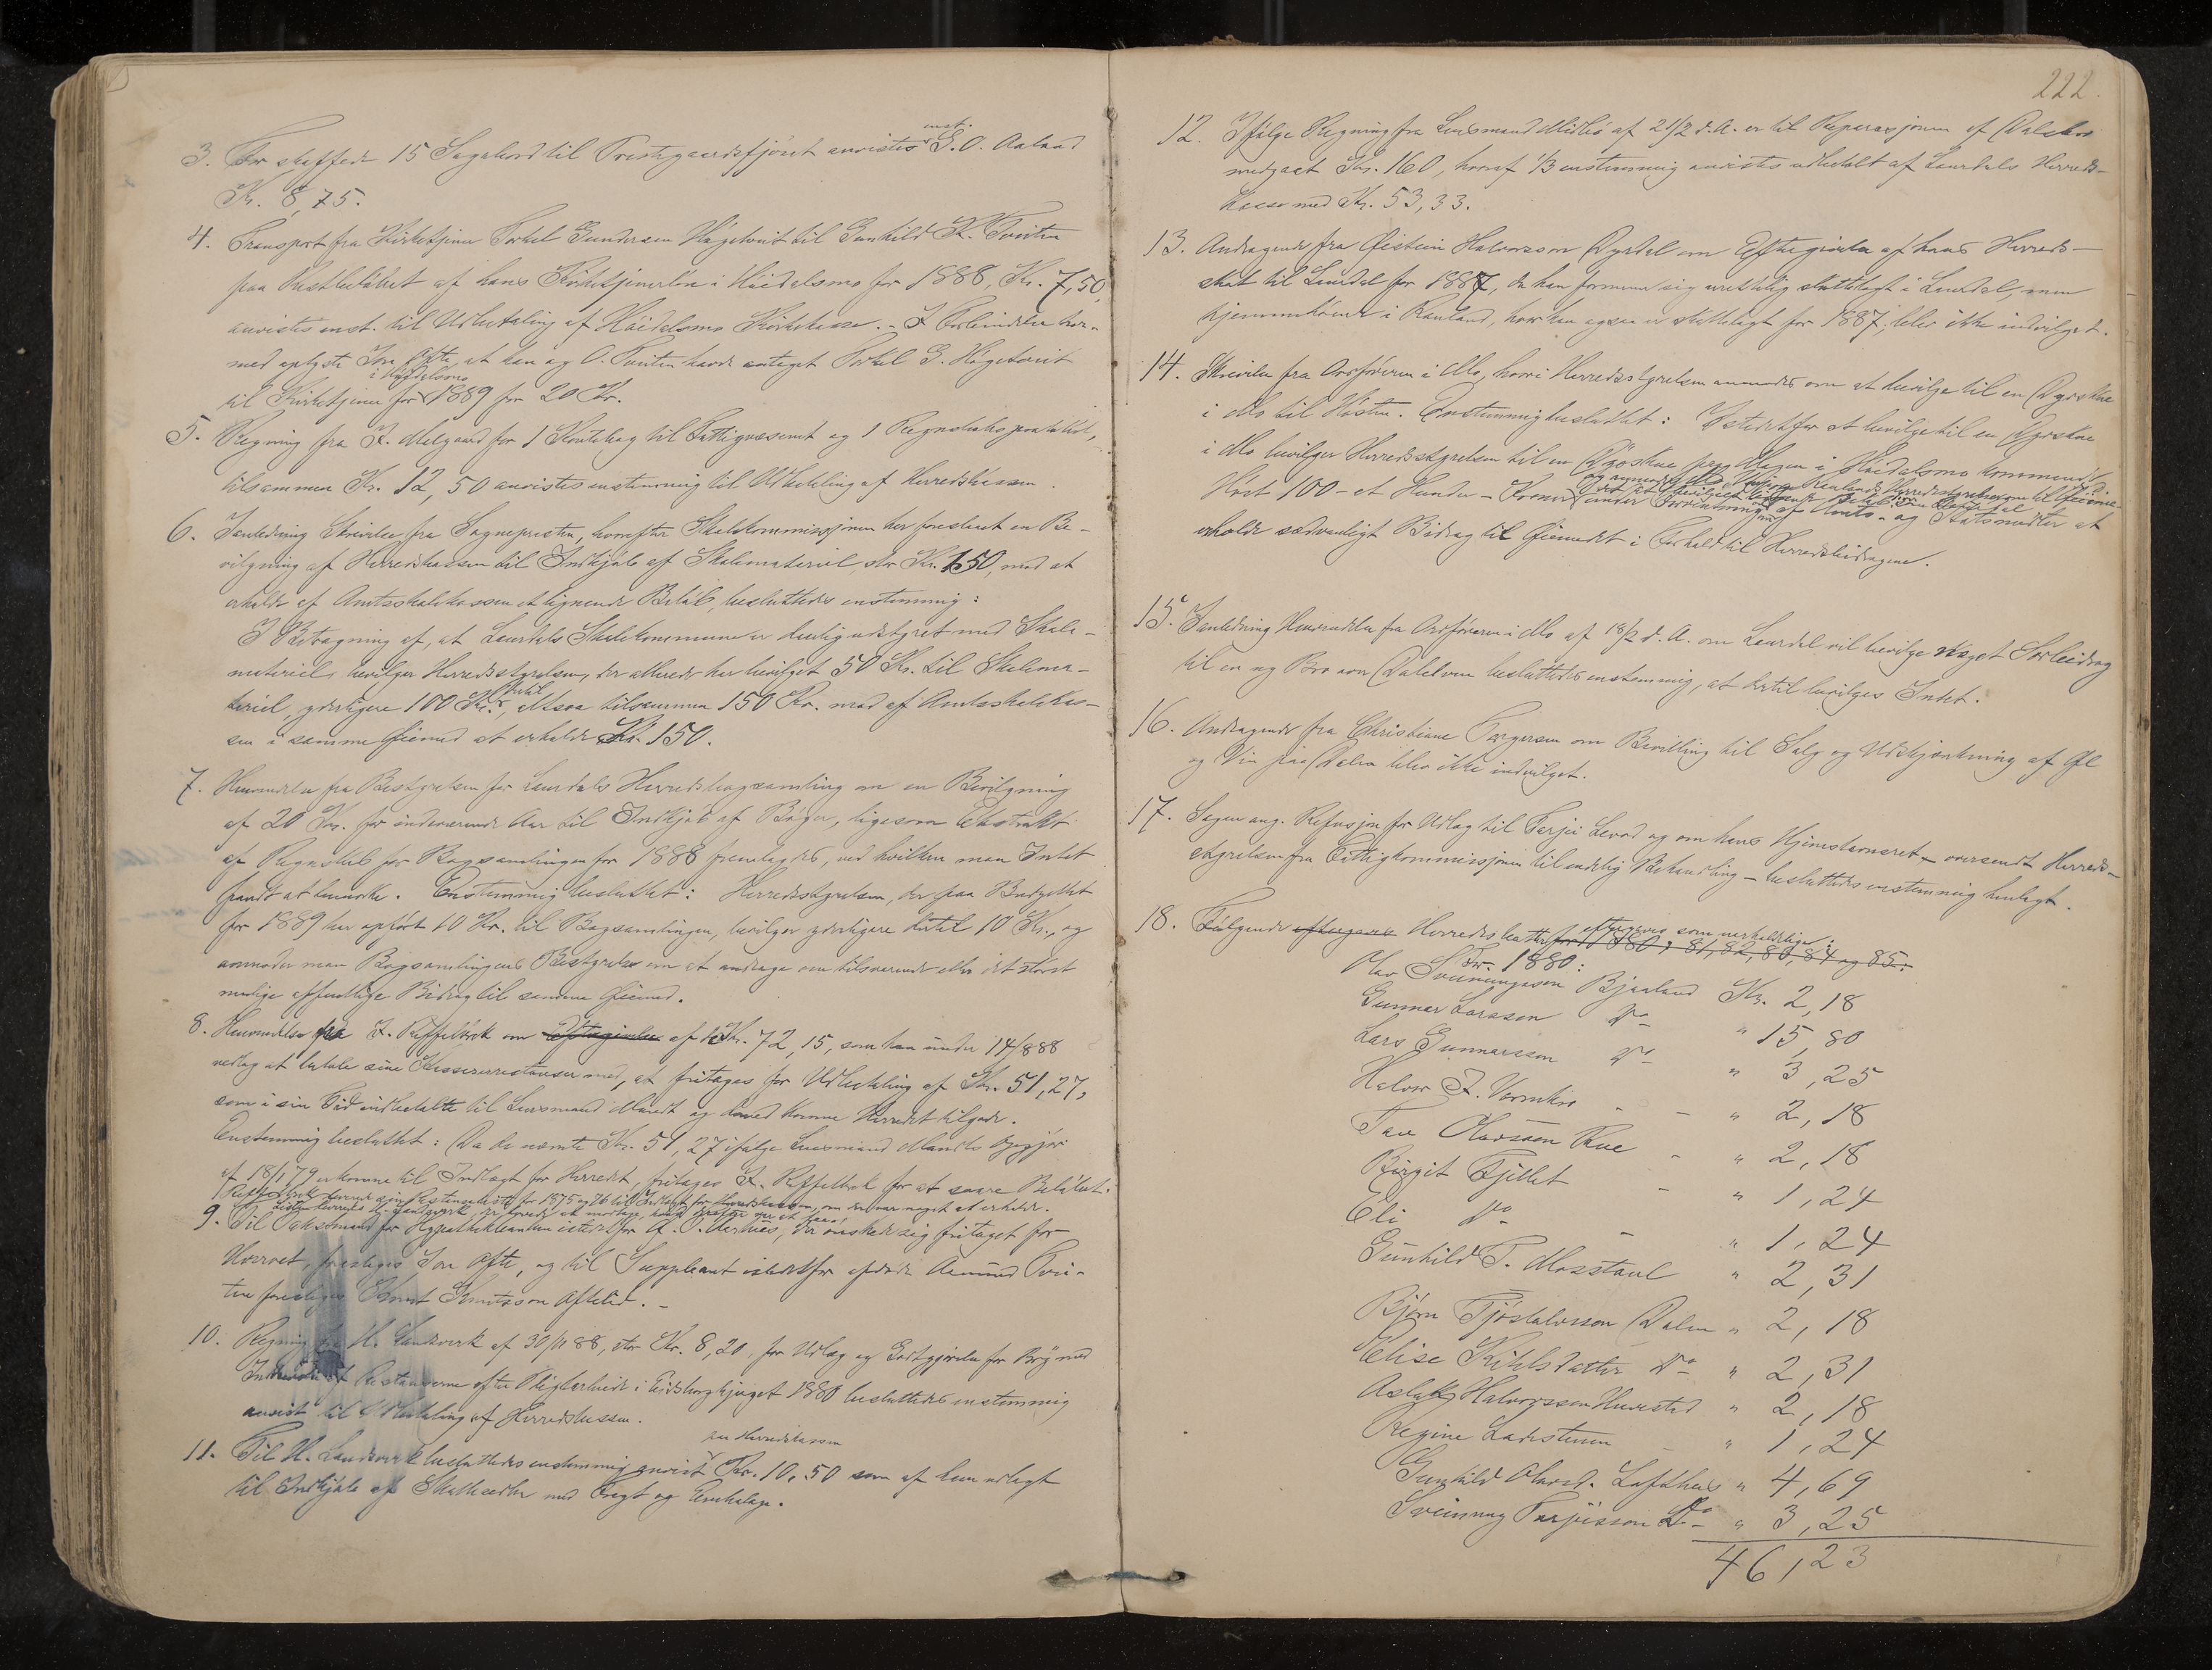 3. For skaffede 15 Sagabord til Prestegaardsfjöset anvistes enst. G. O. Aaland
Kr. 8,75.
4. Transport fra Kirketjener Torkel Gundersen Högetveit til Gunhild K. Tveiten
paa Restbelöbet af hans Kirketjenerlön i Höidalsmo for 1888, Kr. 7,50,
anvistes enst. til Udbetaling af Höidalsmo Kirkekasse. - I Forbindelse her-
med oplyste Jon Ofte, at han og O. Tveiten havde antaget Torkel G. Högetveit
til Kirketjener i Höydalsmo for 1889 for 20 Kr.
5. Regning fra K. Melgaard for 1 Kontobog til Fattigvæsenet og 1 Regnskabsprotokol,
tilsammen Kr. 12,50 anvistes enstemmig til Udbetaling af Herredskassen.
6. I anledning Skrivelse fra Sognepresten, hvorefter Skolekommissjonen har foreslaaet en Be-
vilgning af Herredskassen til Indkjöb af Skolemateriel, stor Kr. 150, mod at
erholde af Amtsskolekassen et lignende Belöb, besluttedes enstemmig:
I Betragtning af, at Laurdals Skolekommune er daarlig udstyret med Skole-
materiel, bevilger Herredsstyrelsen, der allerede har bevilget 50 Kr. til Skolema-
teriel, yderligere 100 Kr. dertil, Altsaa tilsammen 150 Kr. mod af Amtsskolekas-
sen i samme Öiemed at erholde Kr. 150.
7. Henvendelse fra Bestyrelsen for Laurdals Herredsbogsamling om en Bevilgning
af 20 Kr. for indeværende Aar til Indkjöb af Böger, ligesom Ekstrakt
af Regnskab for Bogsamlingen for 1888 fremlagdes, ved hvilken man Intet
fandt at bemærke. Enstemmig besluttet: Herredsstyrelsen, der paa Budgettet
for 1889 har opfört 10 Kr. til Bogsamlingen, bevilger yderligere dertil 10 Kr., og
anmoder man Bogsamlingens Bestyrelse om at andrage om tilsvarende eller det störst
mulige offentlige Bidrag til samme Öiemed.
8. Henvendelse fra K. Røffelbek om Eftergivelse af Kr. 72,15, som han under 14/8 88
vedtog at betale sine Kassererrestancer med, at fritages for Udbetaling af Kr. 51,27,
som i sin Tid indbetalte til Lensmand Mandt og dermed komne Herredet tilgode.
Enstemmig besluttet: Da de nævnte Kr. 51,27 ifølge Lensmand Mandts Opgjör
af 18/1 79 er komne til Indtægt for Herredet, fritages K. Røffelbek for at svare Belöbet.
9. Til Takstmand for Hypothekbanken istedetfor A. O. Aarhuus, der önsker sig fritaget for
Hvervet, foreslages Jon Ofte, og til Suppleant istedetfor afdöde Aamund Tvei-
ten foreslages Knut Knutsson Aftelid. -
10. Regning fra H. Landsverk af 30/11 88, stor Kr. 8,20, for Udlæg og Godtgjörelse for Bry med
Inddrivelse af Restancerne efter Pligtarbeide i Eidsborgkjøvet 1880 besluttedes enstemmig
anvist til Udbetaling af Herredskassen.
11. Til H. Landsverk besluttedes enstemmig anvist paa Herredskassen Kr. 10,50 som af ham udlagt
til Indkjöb af Skattesedler med Fragt og Emballage.
222.
12. Ifölge Regning fra Lensmand Midbö af 21/2 d. A. er til Reparasjonen af Dalebro
medgaat Kr. 160, hvoraf 1/3 enstemmig anvistes udbetalt af Laurdals Herreds-
kasse med Kr. 53,33.
13. Andragende fra Øistein Halvorsson Dyrdal om Eftergivelse af hans Herreds-
skat til Laurdal for 1887, da han formener sig urettelig skattelagt i Laurdal, men
hjemmehörende i Rauland, hvor han ogsaa er skattelagt for 1887, blev ikke indvilget.
14. Skrivelse fra Ordföreren i Mo, hvori Herredsstyrelsen anmodes om at bevilge til en Dyrskue
i Mo til Hösten. Enstemmig besluttet: Istedetfor at bevilge til en Dyrskue
i Mo bevilger Herredsstyrelsen til en Dyrskue paa Mogen i Höidalsmo kommende
Höst 100 - et Hundre - Kroner under Forudsætning af Amts- og Statsmidler at
erholde sædvanligt Bidrag til Öiemedet i Forhold til Herredsbidragene.
15. I anledning Henvendelse fra Ordföreren i Mo af 18/2 d. A. om Laurdal vil bevilge noget Forbidrag
til en ny Bro over Dalelven besluttedes enstemmig, at dertil bevilges Intet.
16. Andragende fra Christiane Torgersen om Bevilling til Salg og Udskjænkning af Öl
og Vin paa Dalen blev ikke indvilget.
17. Sagen ang. Refusjon for Udlæg til Tarjei Levod og om hans Hjemstavnsret - oversendt Herreds-
styrelsen fra Fattigkommissjonen til endelig Behandling - besluttedes enstemmig henlagt.
18. Fölgende eftergaves Herredsskatter for 1880, 81, 82, 83, 84 og 85: eftergives som uerholdelige:
For 1880:
Olav Sveinungsson Bjaaland Kr. 2,18
Gunnar Larsson do - " 15,80
Lars Gunnarsson do - " 3,25
Halvor K. Vermkro - - " 2,18
Tov Olavsson Rue - " 2,18
Birgit Fjellet - " 1,24
Eli do - - " 1,24
Gunhild T. Mosstaul " 2,31
Björn Tjöstolvsson Dalen " 2,18
Elise Kittilsdatter do - " 2,31
Aslak Halvorsson Huvestad " 2,18
Regine Ladestuen - " 1,24
Gunhild Olavsd. Lofthus " 4,69
Sveinung Tarjeisson do - " 3,25
46,23